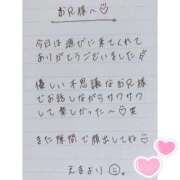 お兄様へ♡
今日は遊びに来てくれて
ありがとうございました
優しい不思議なお兄様
でお話しながらワクワク
して楽しかった〜笑
また隙間で顔出してね♡
えまより